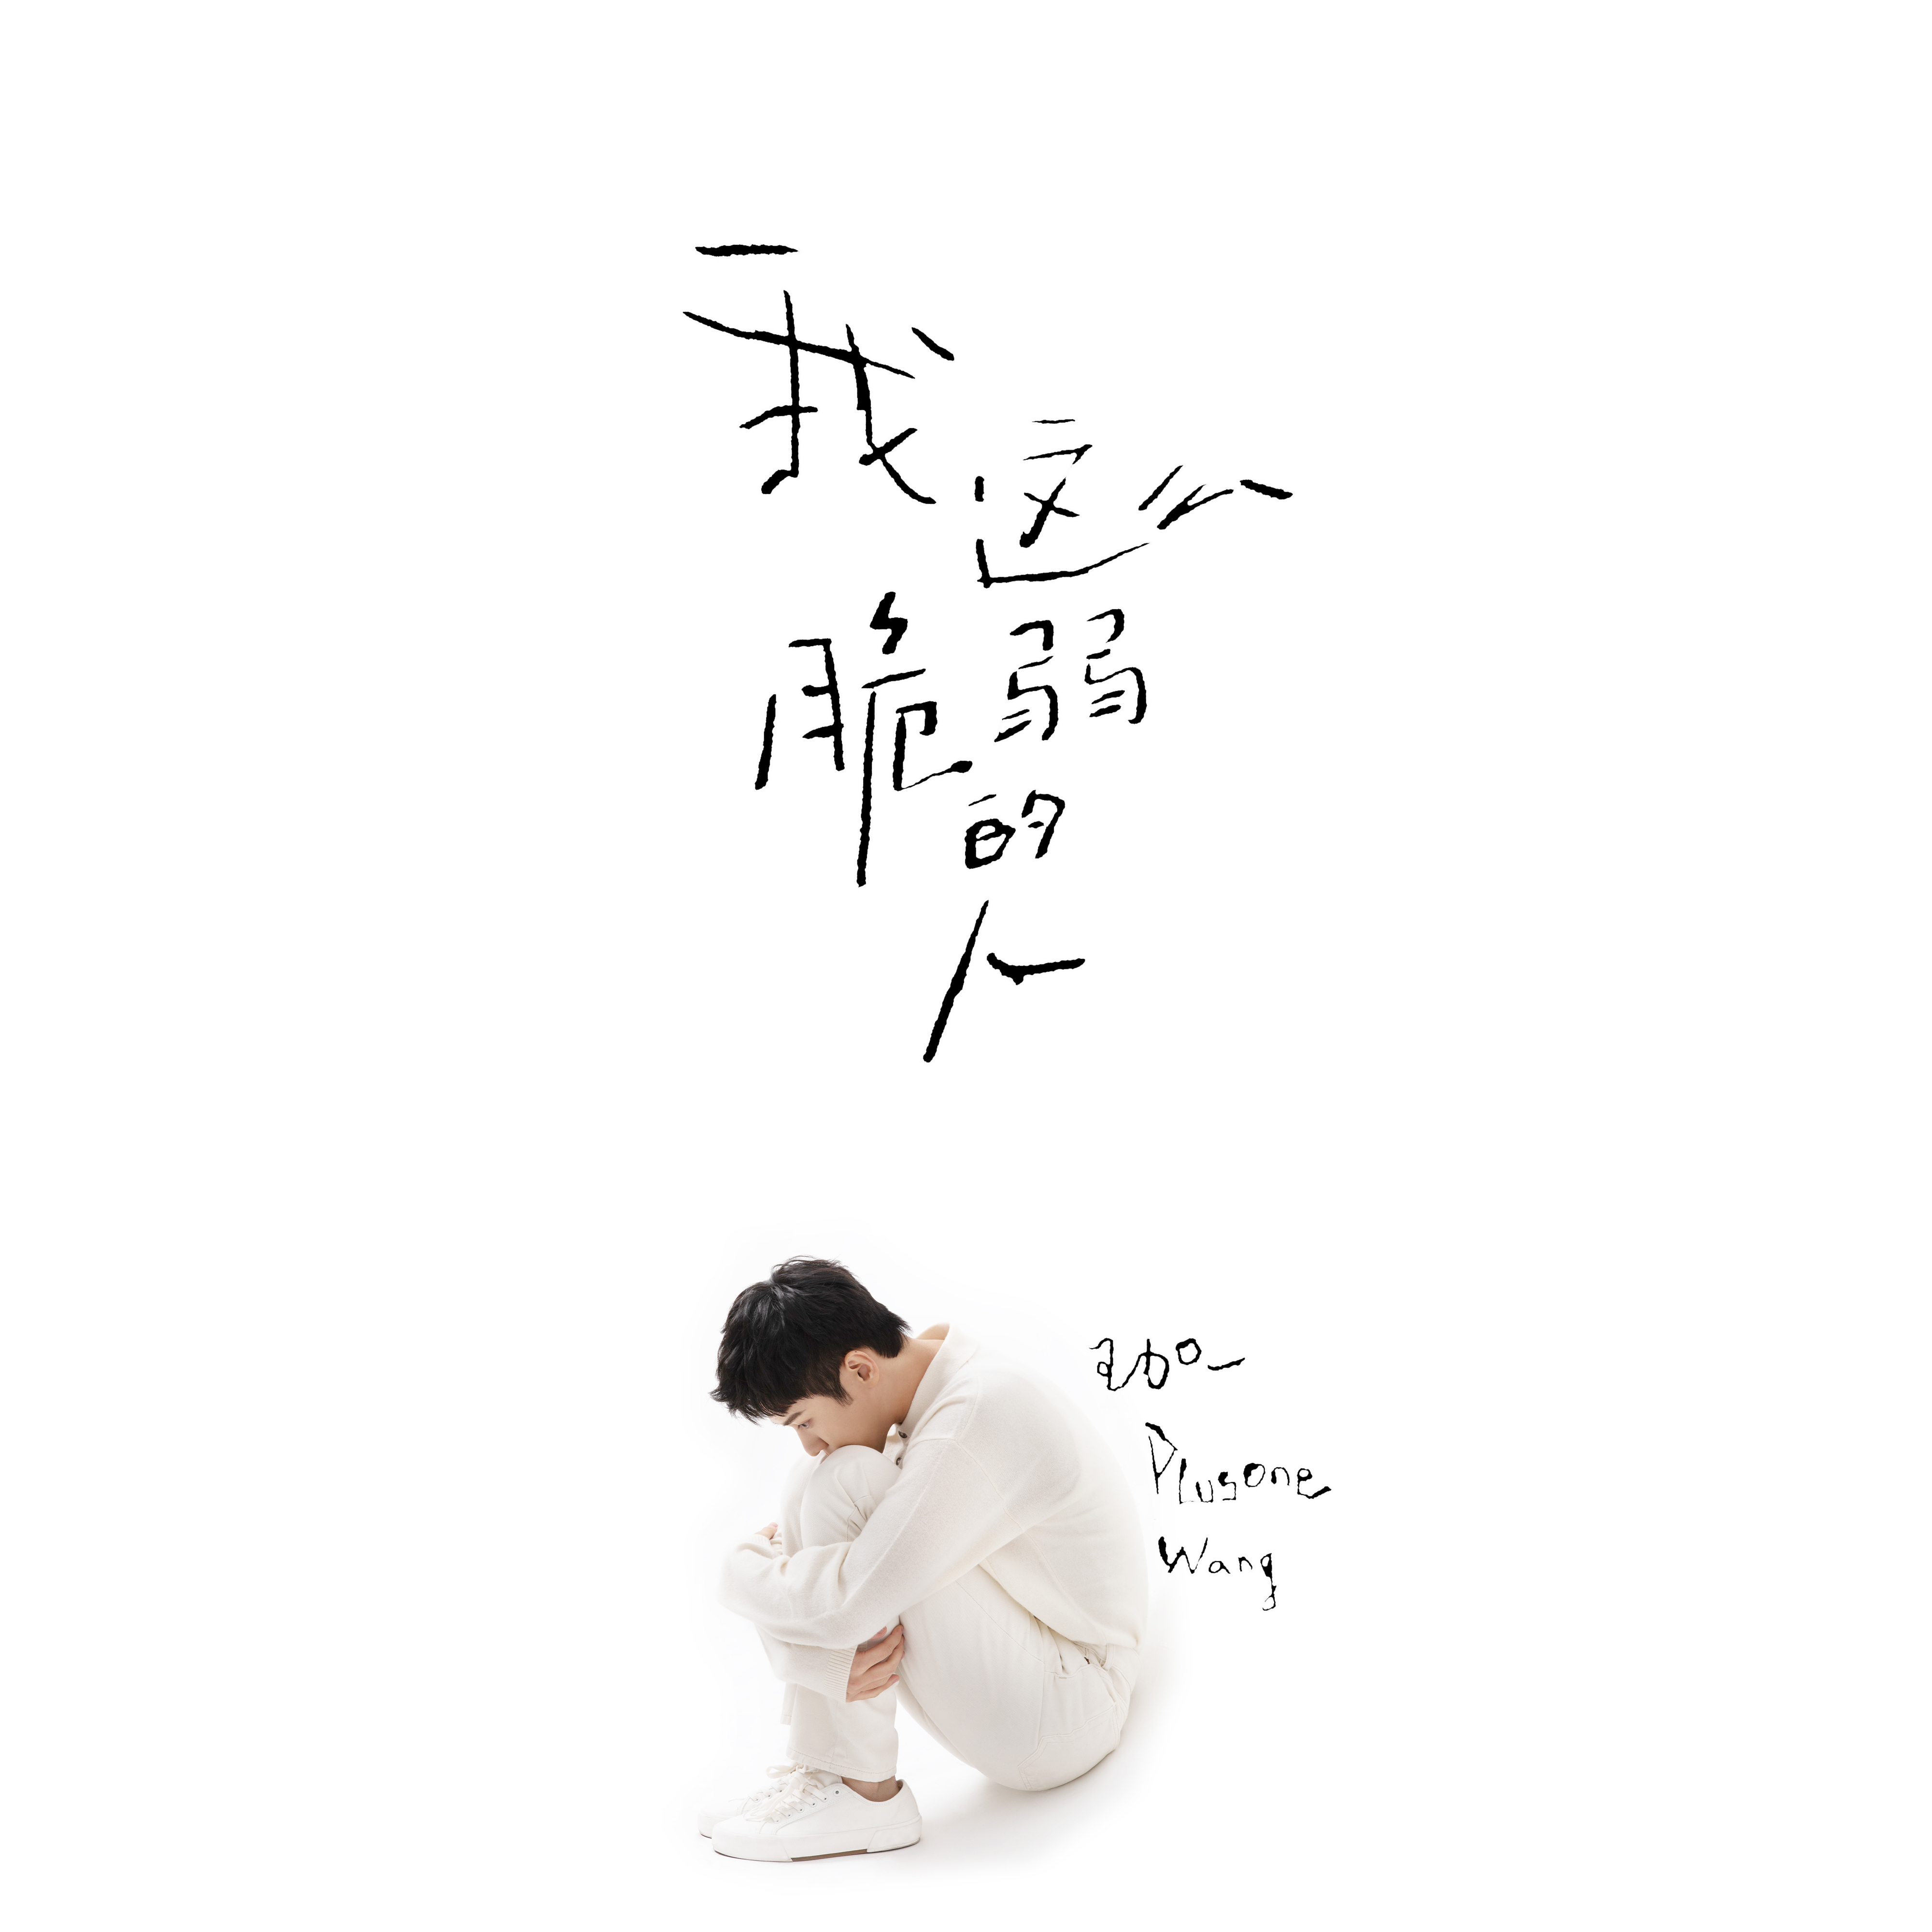 我
这么
脆弱
的
人
王加一
PLusone
Wang